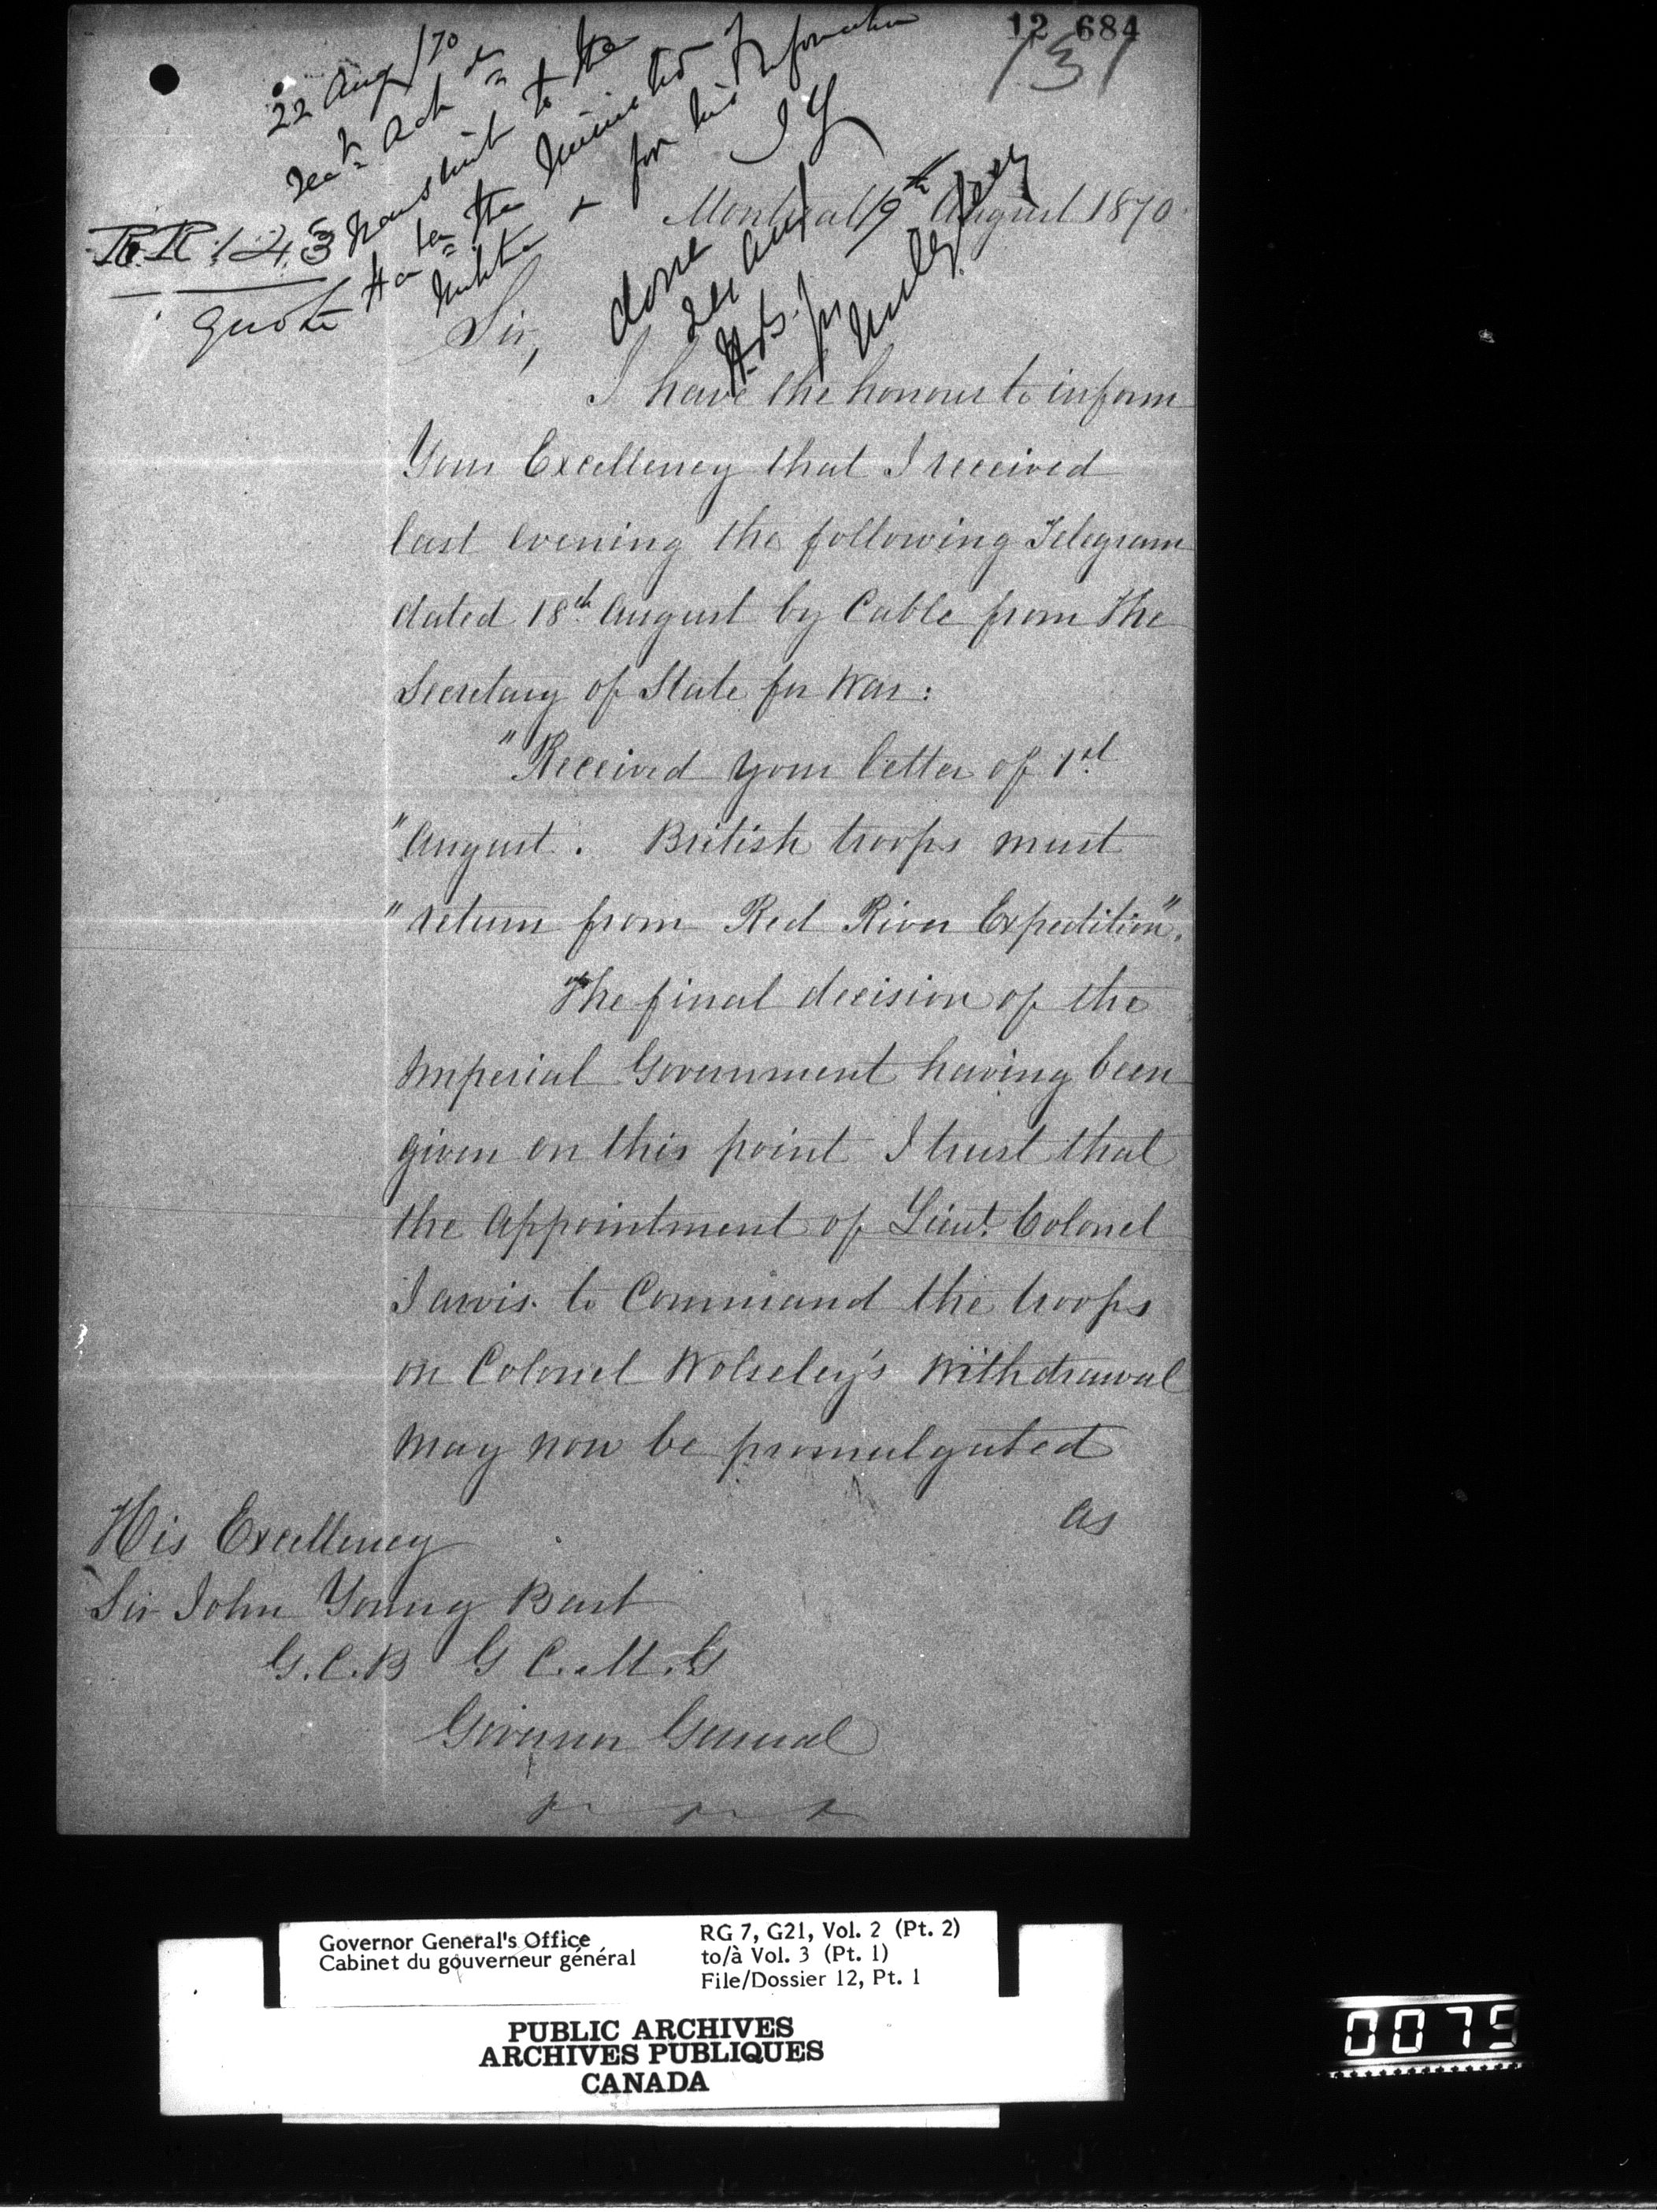 12 684
131
22 Aug/70
Rec'd Ack d
transmit to the
Hon the Minister of
Militia for his Information
JY
done
22 Aug
RR 143
quote
Montreal 19th August 1870
Sir,
I have the honour to inform
Your Excellency that I received
last evening the following Telegram
dated 18th August by Cable from the
Secretary of State for War:
"Received your letter of 1st
"August. British troops must
"return from Red River Expedition".
The final decision of the
Imperial Government having been
given on this point I trust that
the appointment of Lieut. Colonel
Jarvis. to Command the troops
on Colonel Wolseley's Withdrawal
may now be promulgated
as
His Excellency
Sir John Young Bart
G.C.B G C.M.G
Governor General
Governor General's Office
Cabinet du gouverneur général
RG 7, G21, Vol. 2 (Pt. 2)
to/à Vol. 3 (Pt. 1)
File/Dossier 12, Pt. 1
PUBLIC ARCHIVES
ARCHIVES PUBLIQUES
CANADA
0075